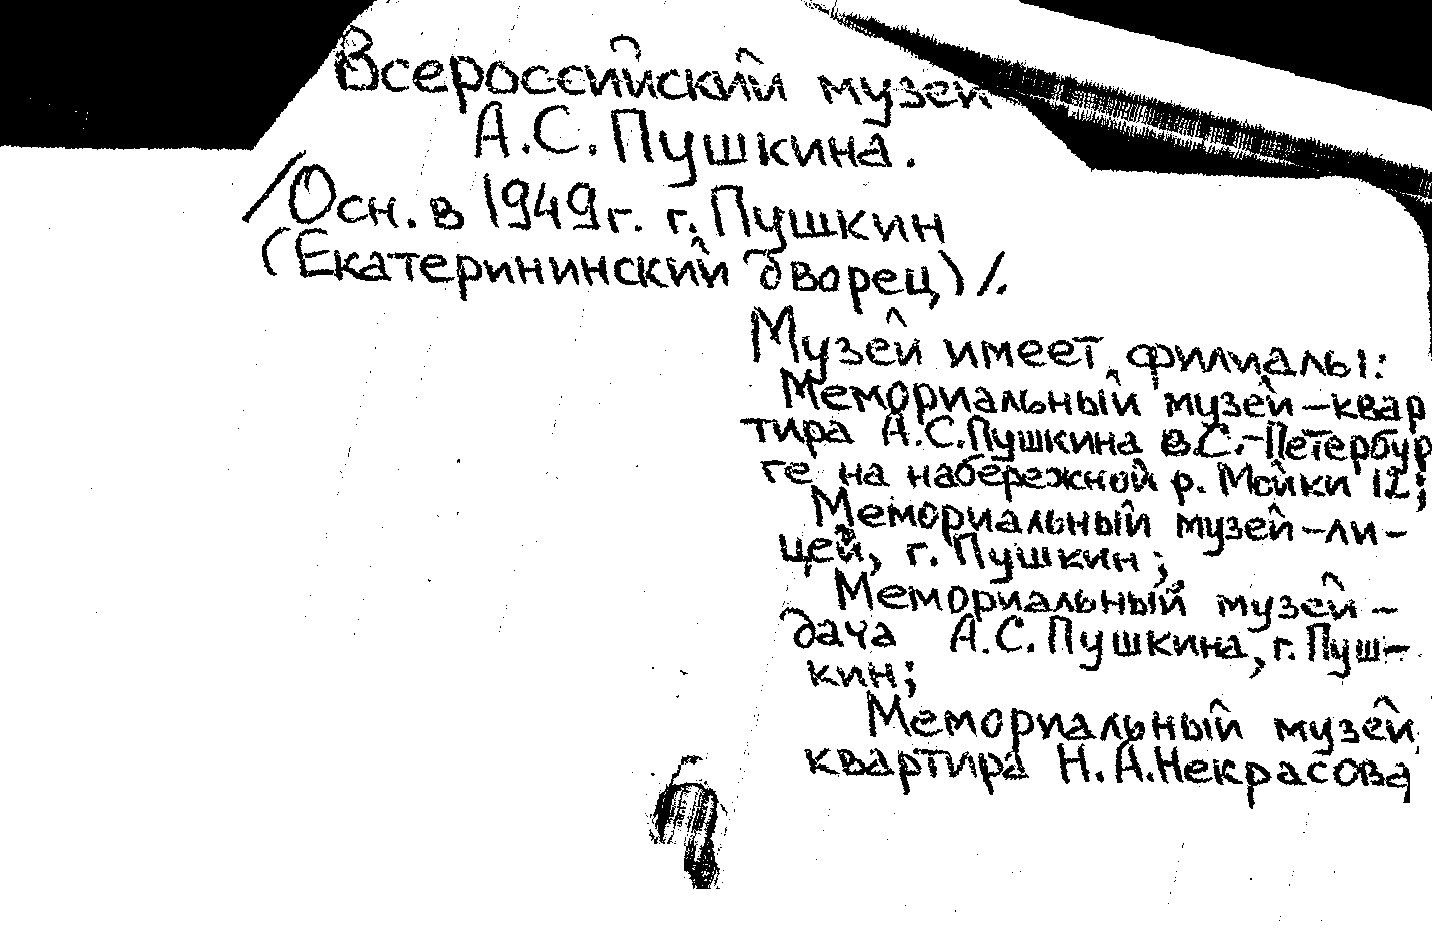 Всероссийский музей
А.С. Пушкина.
/Осн. в 1949г. г. Пушкин
(Екатерининский дворец)/.
Музей имеет филиалы:
Мемориальный музей-квар
тира А.С.Пушкина в С.-Петербур
ге на набережной р. Мойки 12;
Мемориальный музей-ли-
цей, г. Пушкин;
Мемориальный музей-
дача А.С. Пушкина, г. Пуш-
кин;
Мемориальный музей
квартира Н.А.Некрасова,